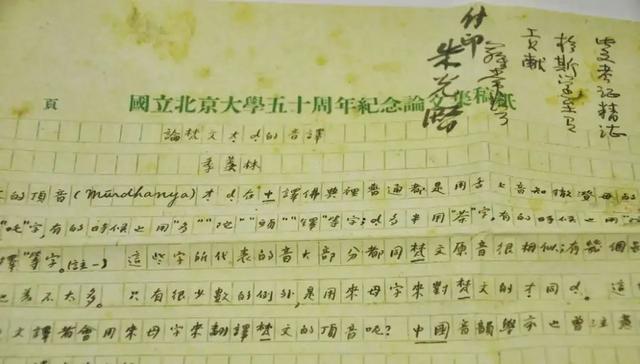 付印
朱光潛
貢献
頁
國立北京大學五十周年紀念論文集稿紙
論梵文ṭ ḍ的音譯
季羨林
的頂音(Mūrdhanya) ṭ ḍ在中譯佛典裡普通都是用舌上音知徹澄母的
"吒"字,有的時候也用"多""陀""頭""鐸"等字;ḍ多半用"荼"字,有的時候也用
"等字。(註一) 這些字所代表的音大部分都同梵文原音很相似;有幾個
也差不太多。 只有很少數的例外,是用來母字來對梵文的ṭ同ḍ。這
文譯者會用來母字來翻譯梵文的頂音呢? 中國音韻學家也曾注意